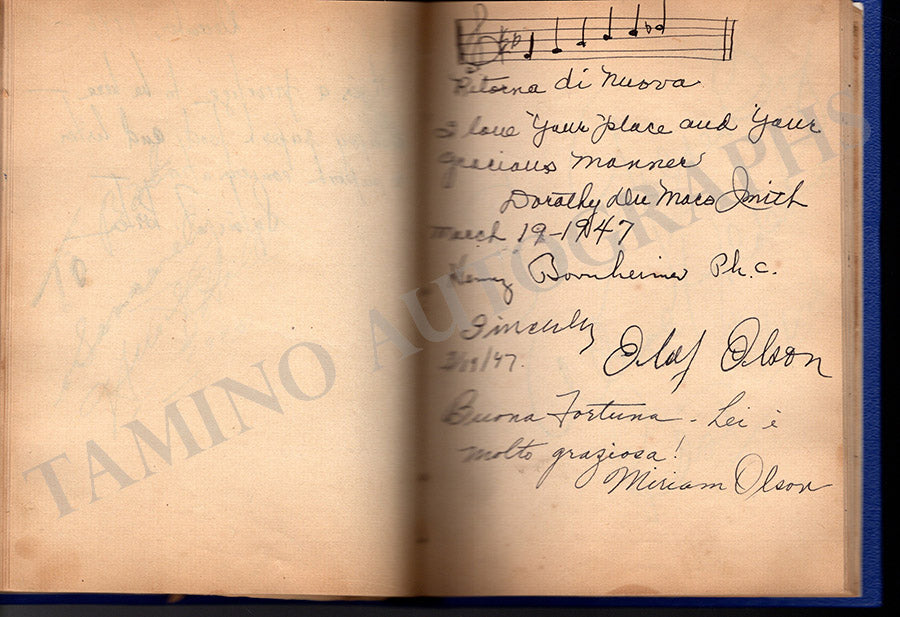 Ritorna di Nuova
I love your place and your
gracious manner
Dorothy Smith
March 19-1947
Henry Bornheimer Ph.C.
Sincerely
Olaf Olson
/47.
Buona Fortuna - Lei è
molto graziosa!
Miriam Olson
TAMINO AUTOGRAPHS